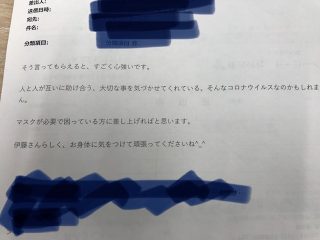 差出人:
送信日時:
宛先:
件名:
分類項目:
そう言ってもらえると、すごく心強いです。
人と人が互いに助け合う、大切な事を気づかせてくれている、そんなコロナウイルスなのかもしれませ
ん。
マスクが必要で困っている方に差し上げればと思います。
伊藤さんらしく、お身体に気をつけて頑張ってくださいね^_^